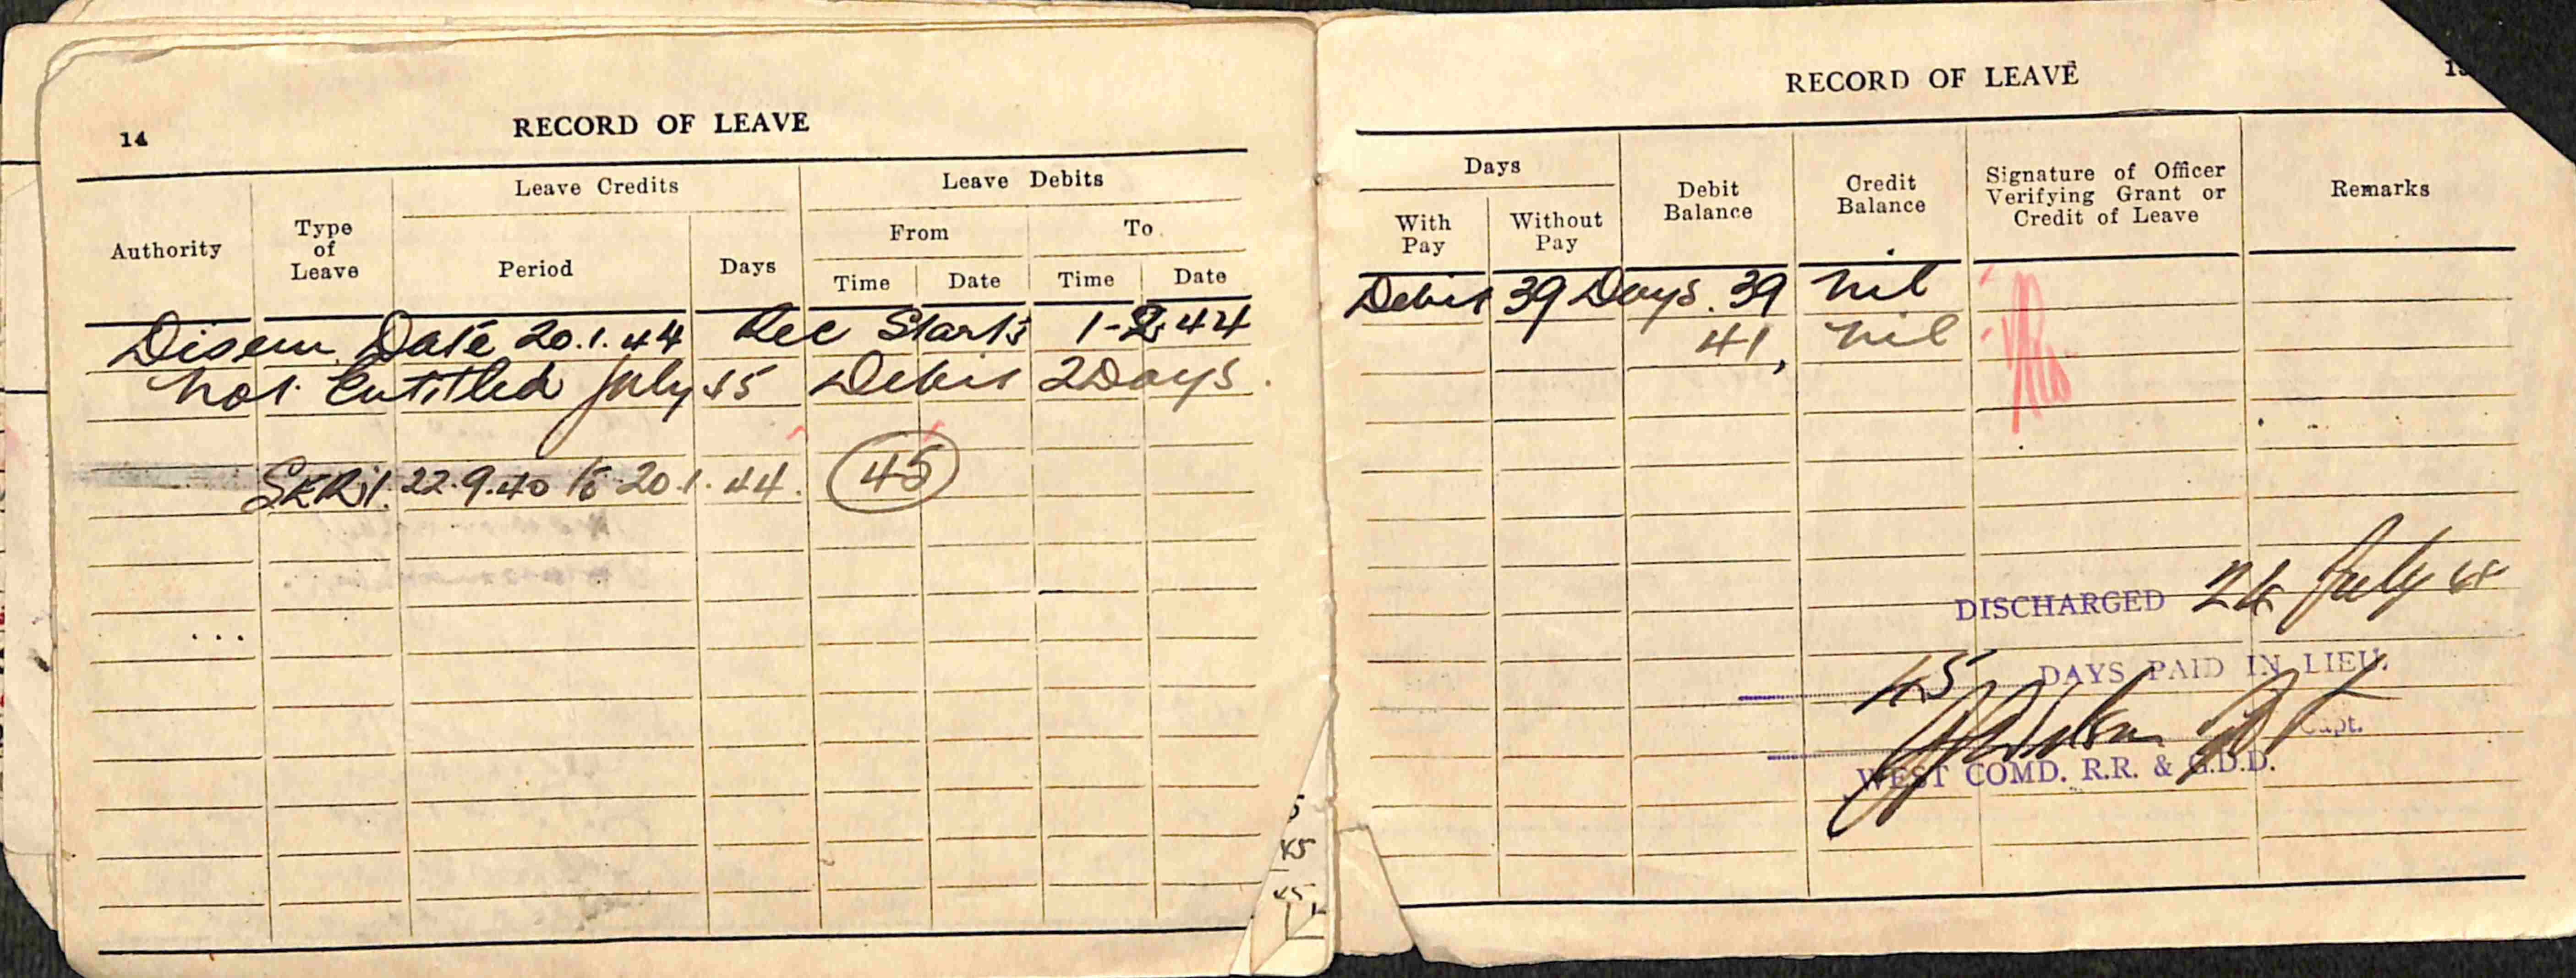 14
RECORD OF LEAVE
Authority
Type of Leave
Leave Credits
Period
Days
Leave Debits
From
To
Time
Date
Time
Date
Disem Date 20.1.44 Rec Starts 1-2-44
Not Entitled July 45 Debit 2 Days.
22.9.40 to 20.1.44. 45
5
45
45
RECORD OF LEAVE
Days
With Pay
Without Pay
Debit Balance
Credit Balance
Signature of Officer Verifying Grant or Credit of Leave
Remarks
Debit 39 Days. 39 Nil
41, Nil
DISCHARGED July
45 DAYS PAID IN LIEU.
Capt.
WEST COMD. R.R. & G.D.D.